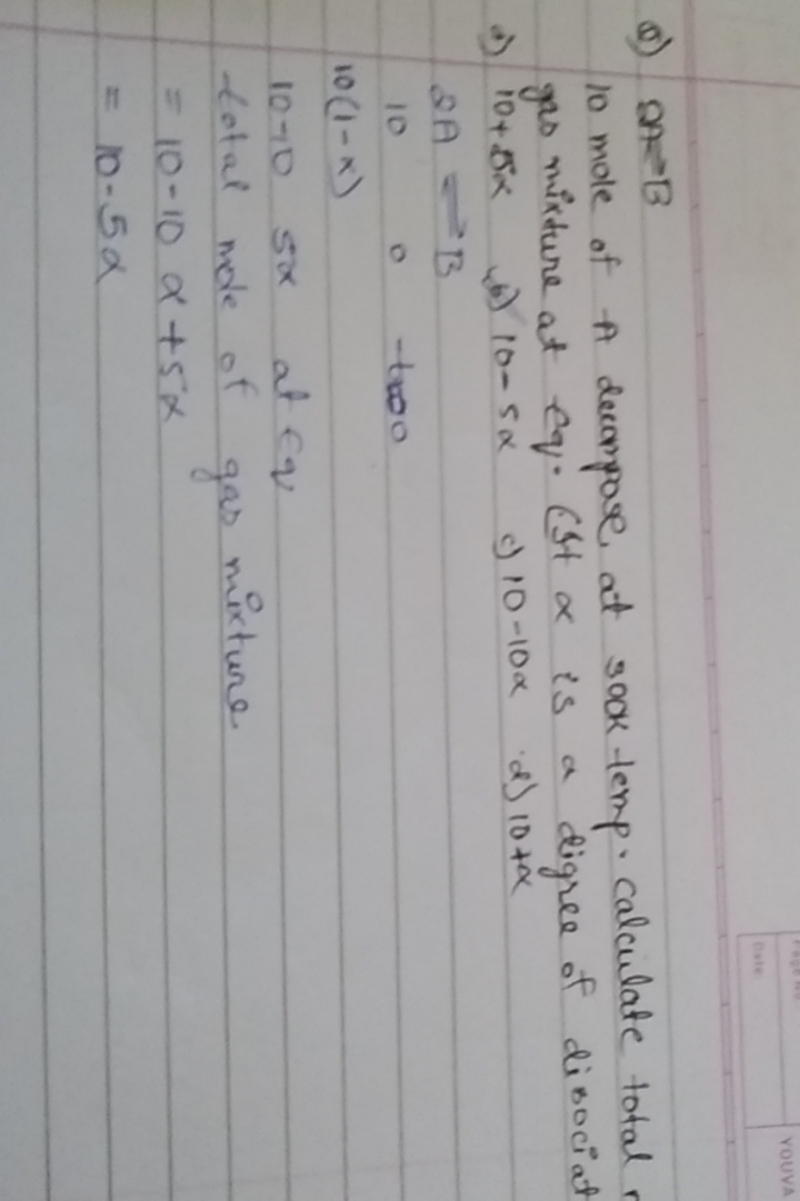 Page No.
Date:
YOUVA
Q) 2A⇌B
10 mole of A decompose at 300K temp. calculate total
gas mixture at Eq. (If α is a digree of disociat
a) 10+5α b) 10-5α c) 10-10α d) 10+α
2A ⇌ B
10 0 t=0
10(1-α)
5α at Eq
total mole of gas mixture
= 10-10α+5α
= 10-5α